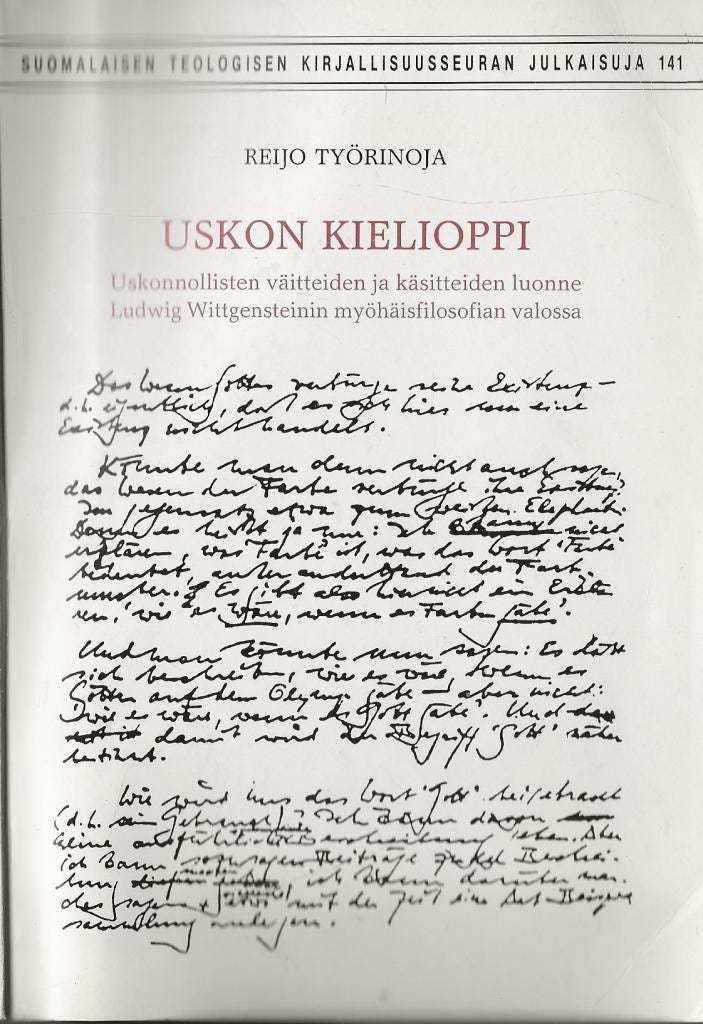 SUOMALAISEN TEOLOGISEN KIRJALLISUUSSEURAN JULKAISUJA 141
REIJO TYÖRINOJA
USKON KIELIOPPI
Uskonnollisten väitteiden ja käsitteiden luonne
Ludwig Wittgensteinin myöhäisfilosofian valossa
Das Wesen Gottes verbürge seine Existenz –
d.h. eigentlich, daß es sich hier um eine
Existenz nicht handelt.
Könnte man denn nicht auch sagen,
das Wesen der Farbe verbürge ihre Existenz?
Im Gegensatz etwa zum weißen Elephant.
Denn es heißt ja nur: Ich kann nicht
erklären, was 'Farbe' ist, was das Wort 'Farbe'
bedeutet, außer an der Hand des Farb-
musters. Es gibt also hier nicht ein Erklä-
ren, 'wie es wäre, wenn es Farben gäbe'.
Und man könnte nun sagen: Es läßt
sich beschreiben, wie es wäre, wenn es
Götter auf dem Olymp gäbe – aber nicht:
'wie es wäre, wenn es Gott gäbe'. Und
damit wird der Begriff 'Gott' näher
bestimmt.
Wie wird uns das Wort 'Gott' beigebracht
(d.h. sein Gebrauch)? Ich kann davon
keine ausführliche Beschreibung geben. Aber
ich kann sozusagen Beiträge zu der Beschrei-
bung machen, ich kann darüber man-
ches sagen mit der Zeit eine Art Beispiel
sammlung anlegen.